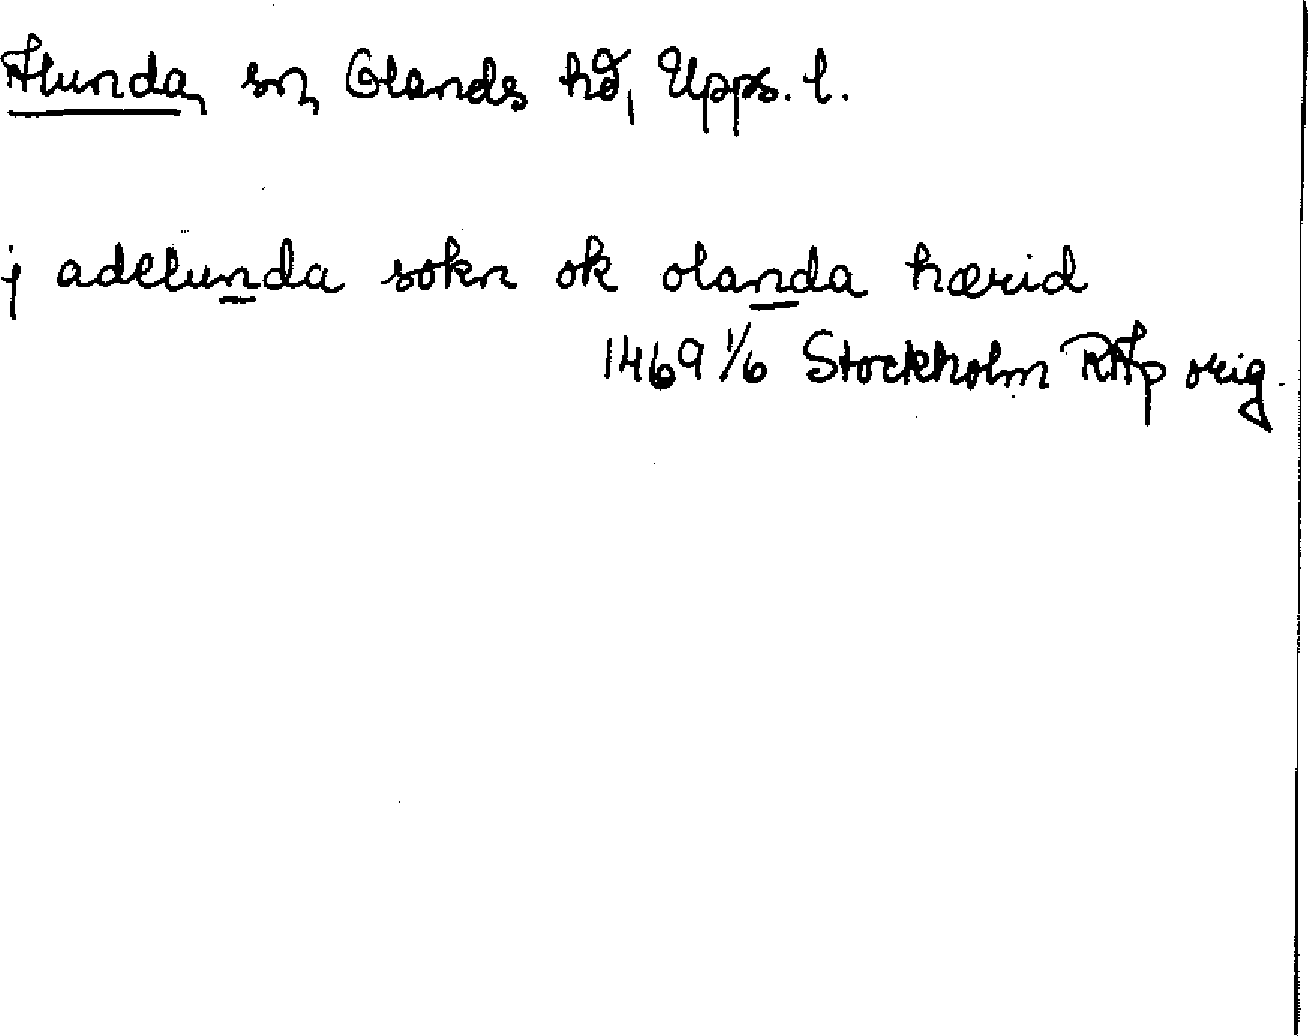 Alunda, sn, Olands hd, Upps. l.
j adelunda sokn ok olanda hærid
1469 1/6 Stockholm RAp orig.